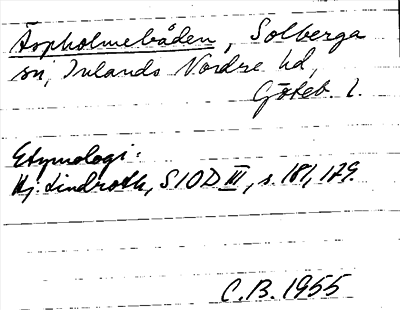 Äspholmebåden, Solberga
sn, Inlands Nordre hd,
Göteb. l.
Etymologi:
Hj. Lindroth, SIOD III, s. 181, 179.
C.B. 1955